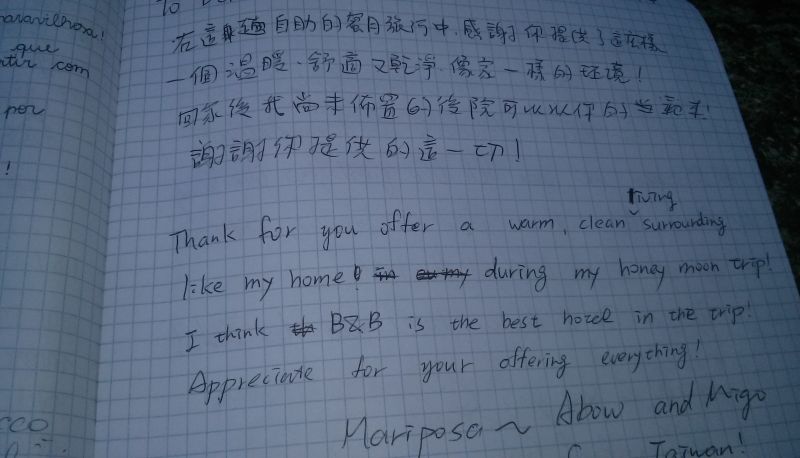 aravilhosa!
que
tir com
por
!
cco
To
在這趟自助的蜜月旅行中,感謝你提供了這樣
一個溫暖、舒適又乾淨,像家一樣的环境!
回家後我尚未佈置的後院可以以你的當範本!
謝謝你提供的這一切!
Thank for you offer a warm, clean living surrounding
like my home! during my honey moon trip!
I think B&B is the best hotel in the trip!
Appreciate for your offering everything!
Mariposa~ Abow and Migo
Taiwan!